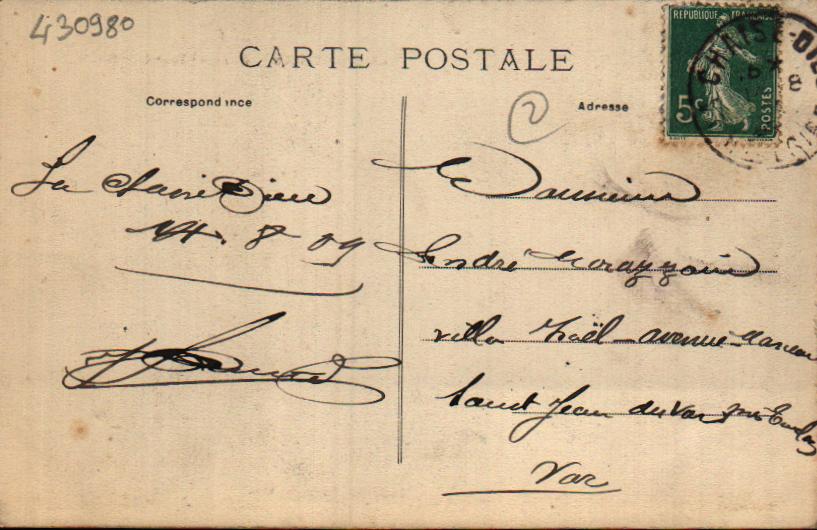 430980
CARTE POSTALE
Correspondance
Adresse
2
REPUBLIQUE FRANÇAISE
5c
POSTES
CHAISE-DIEU
8
La Chaise Dieu
14. 8 09
Monsieur
André
villa Noël - avenue Marceau
Saint Jean du Var par Toulon
Var